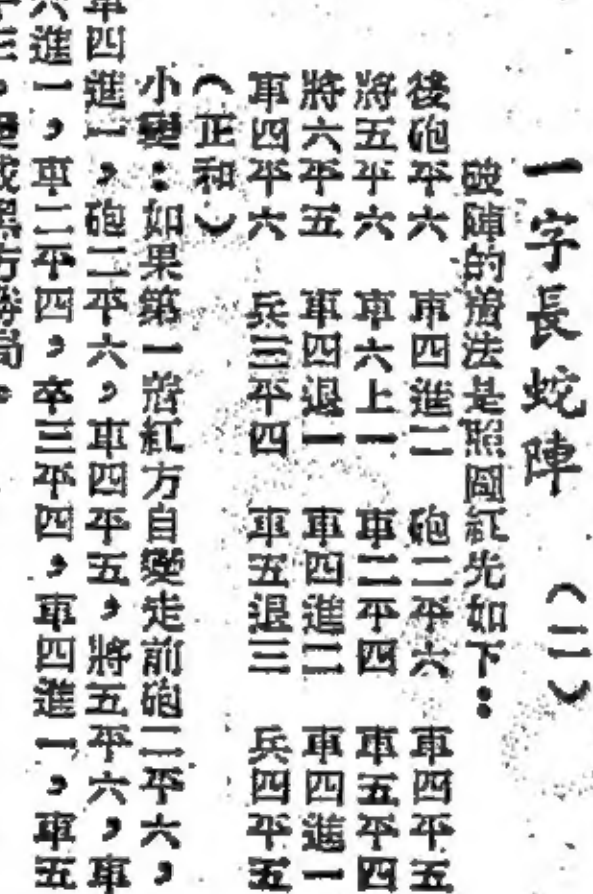 一字長蛇陣 (二)
破陣的着法是照圖紅先如下:
後砲平六 車四進二 砲二平六 車四平五
將五平六 車六上一 車二平四 車五平四
將六平五 車四退一 車四進二 車四進一
車四平六 兵三平四 車五退三 兵四平五
(正和)
小變:如果第一着紅方自變走前砲二平六,
車四進一,砲二平六,車四平五,將五平六,車
六進一,車二平四,卒三平四,車四進一,車五
平三,變成黑方勝局。